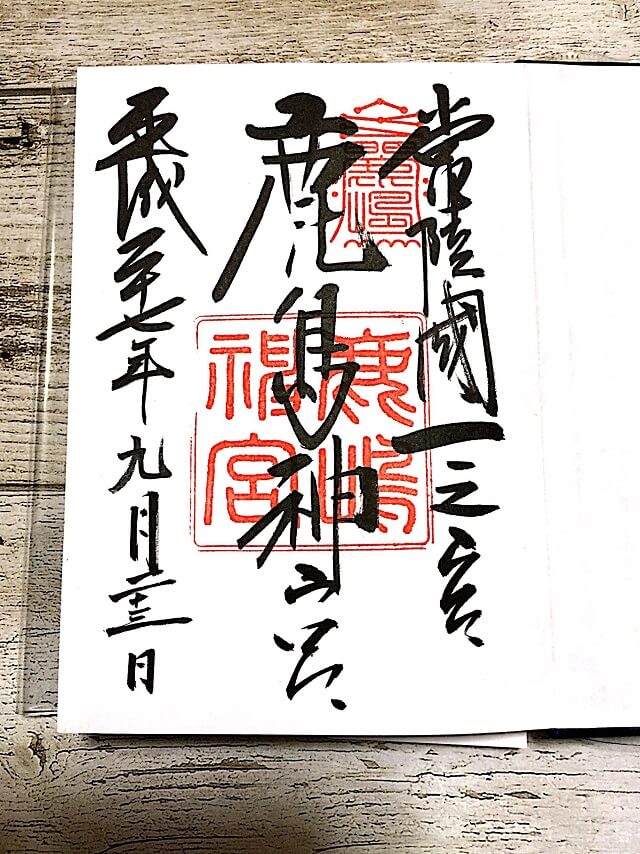 常陸國一之宮
鹿島神宮
鹿嶋
神宮
平成二十七年九月二十三日